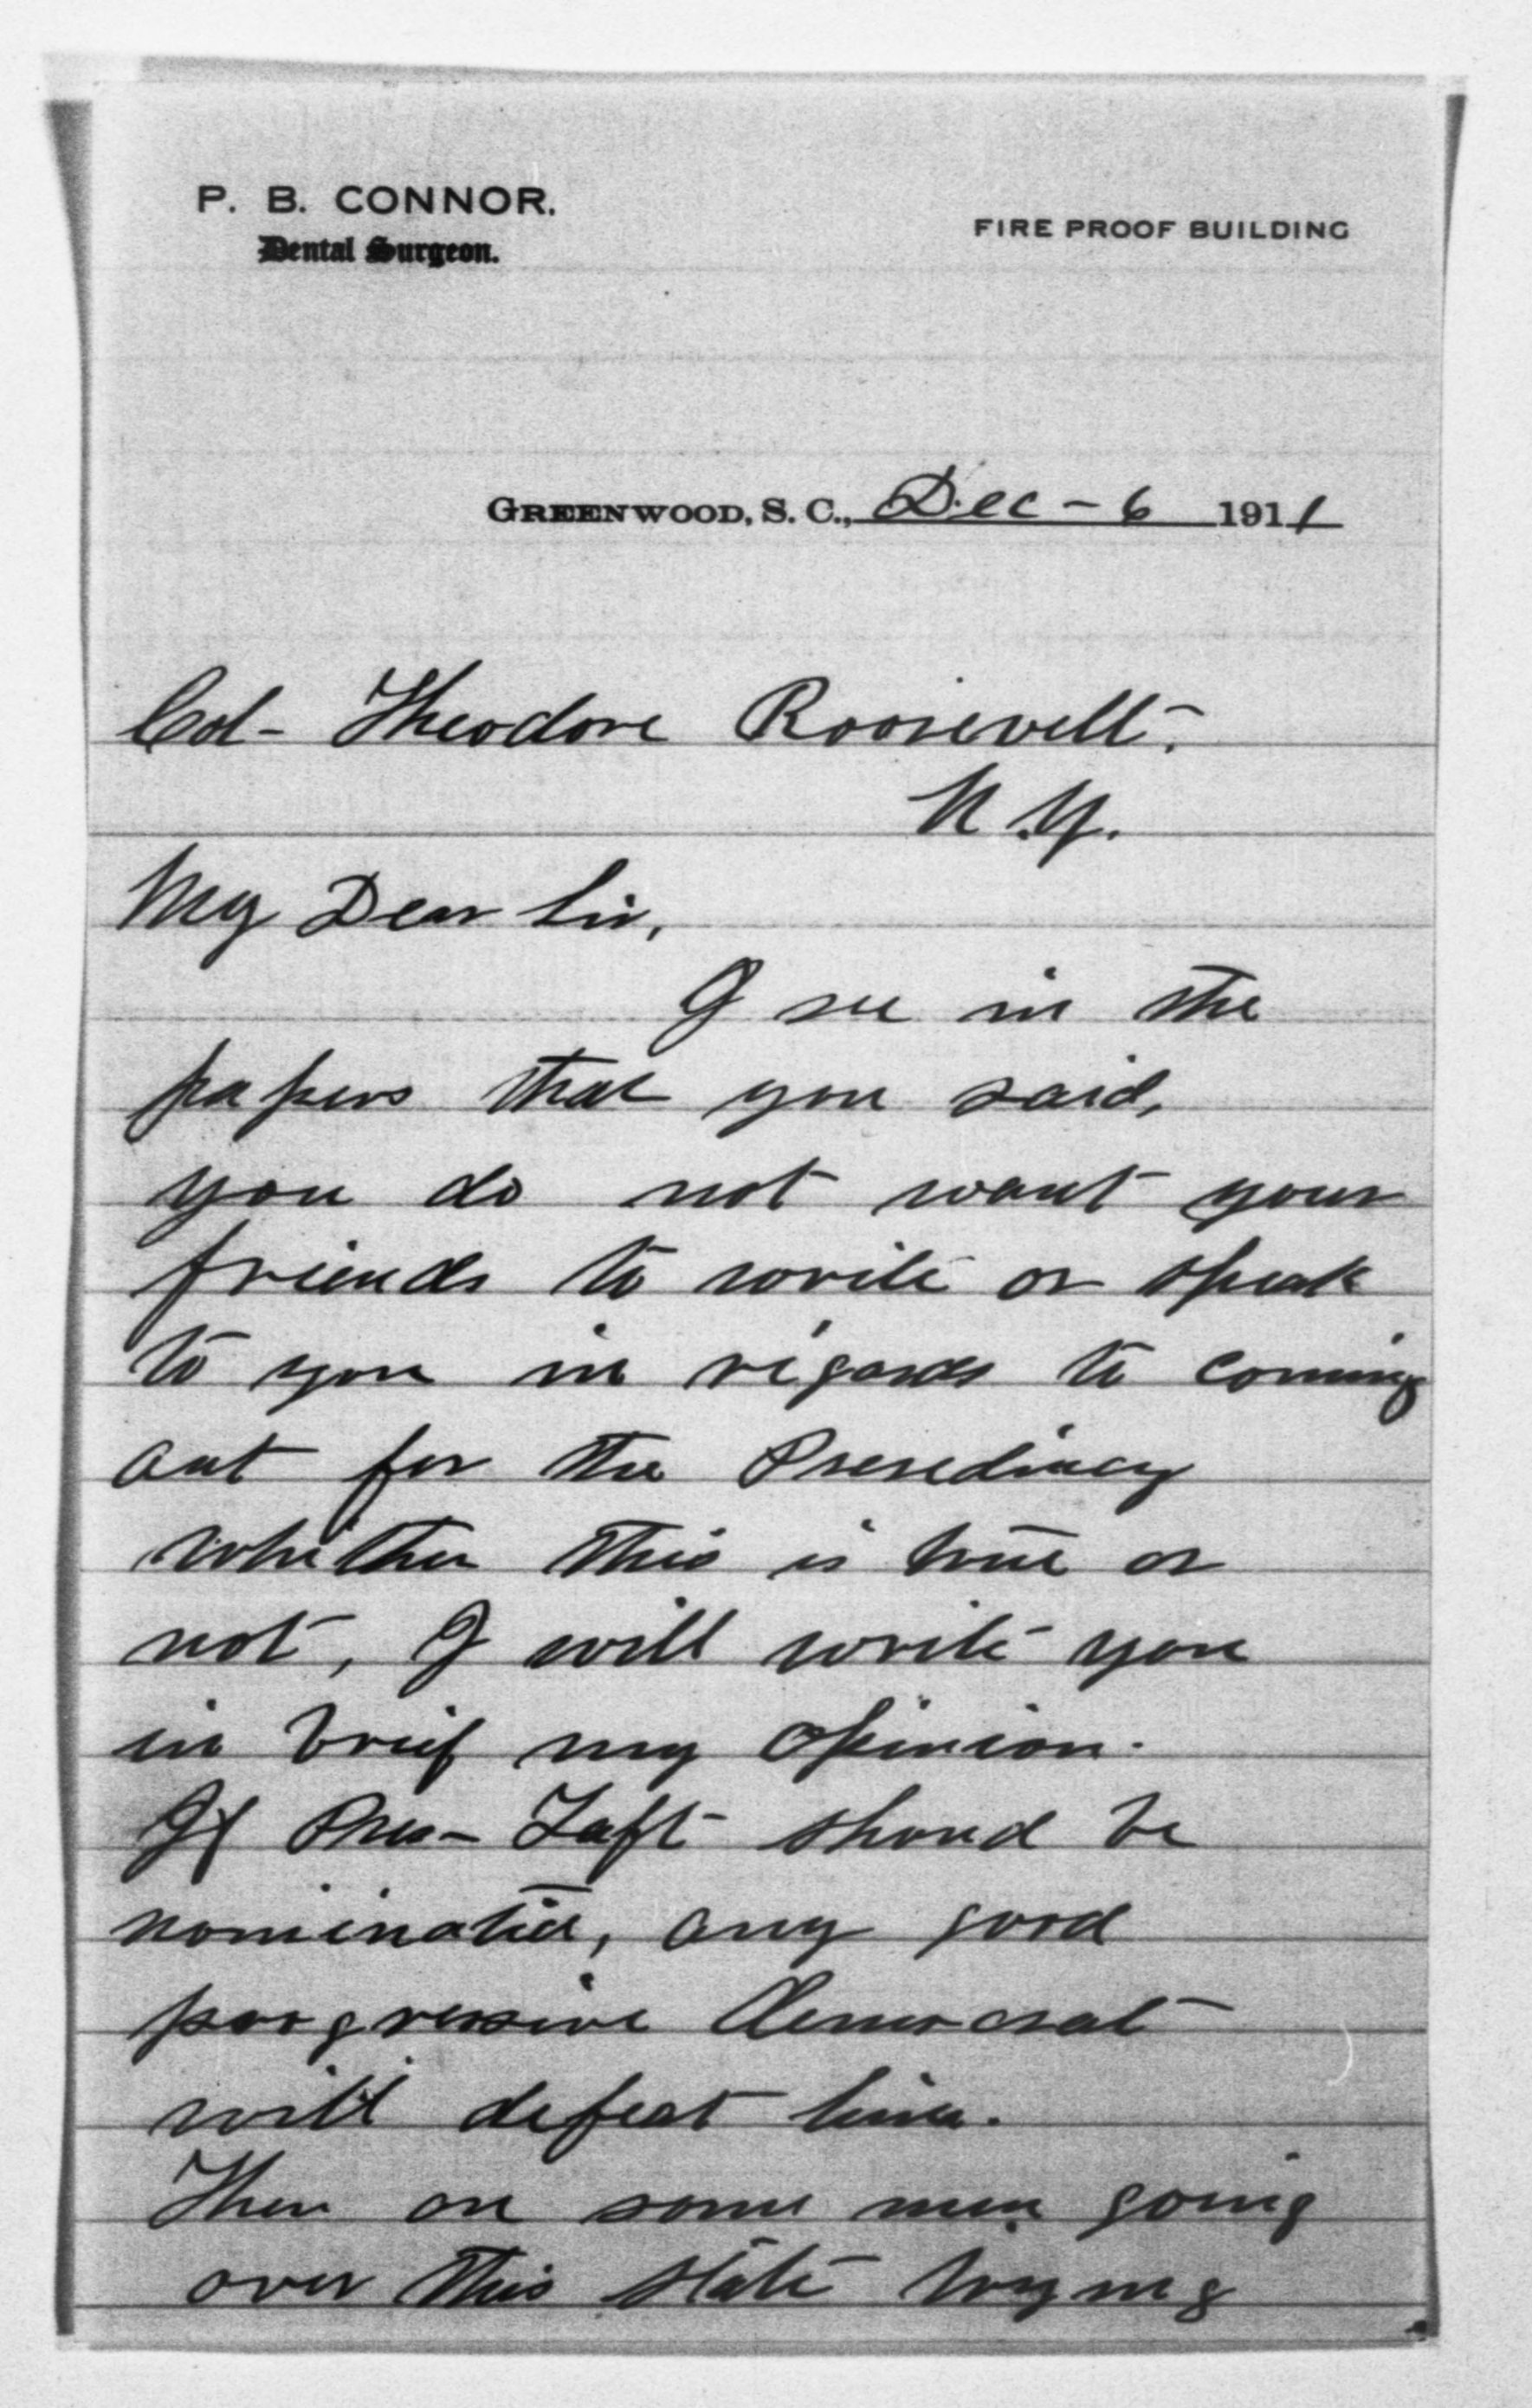 P. B. CONNOR.
Dental Surgeon.
FIRE PROOF BUILDING
GREENWOOD, S. C., Dec - 6 1911
Col- Theodore Roosevelt.
N.Y.
My Dear Sir,
I see in the
papers that you said,
you do not want your
friends to write or speak
to you in regards to coming
out for the Presedincy
whether this is true or
not, I will write you
in brief my opinion.
If Pres- Taft shoud be
nominated, any good
progressive democrat
will defeat him.
There are some men going
over this state trying